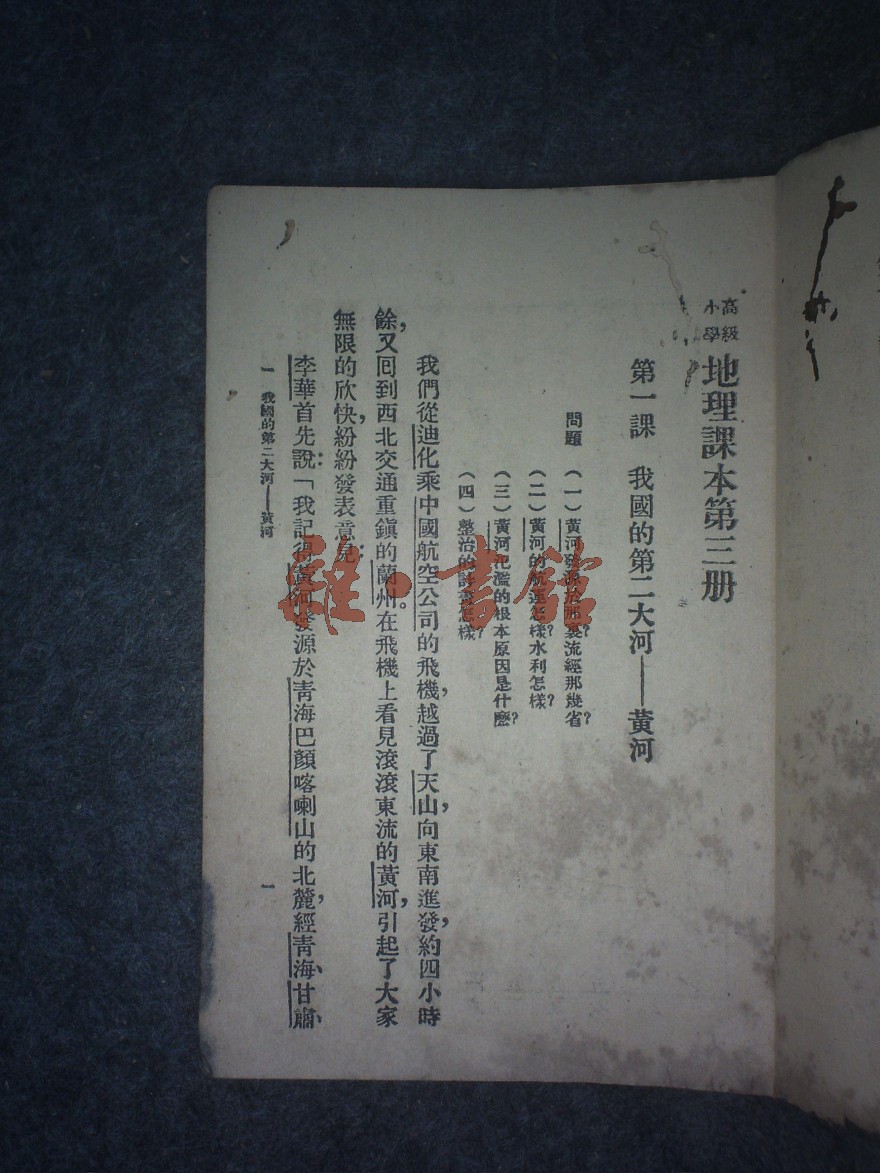 高級
小學
地理課本第三册
第一課　我國的第二大河——黃河
問題　(一)黃河發源於那裏?流經那幾省?
(二)黃河的航運怎樣?水利怎樣?
(三)黃河汜濫的根本原因是什麼?
(四)整治的計畫怎樣?
我們從迪化乘中國航空公司的飛機,越過了天山,向東南進發,約四小時
餘,又囘到西北交通重鎮的蘭州。在飛機上看見滾滾東流的黃河,引起了大家
無限的欣快,紛紛發表意見:
李華首先說:「我記得黃河發源於青海巴顏喀喇山的北麓,經青海、甘肅、
一　我國的第二大河——黃河
一
雜·書館